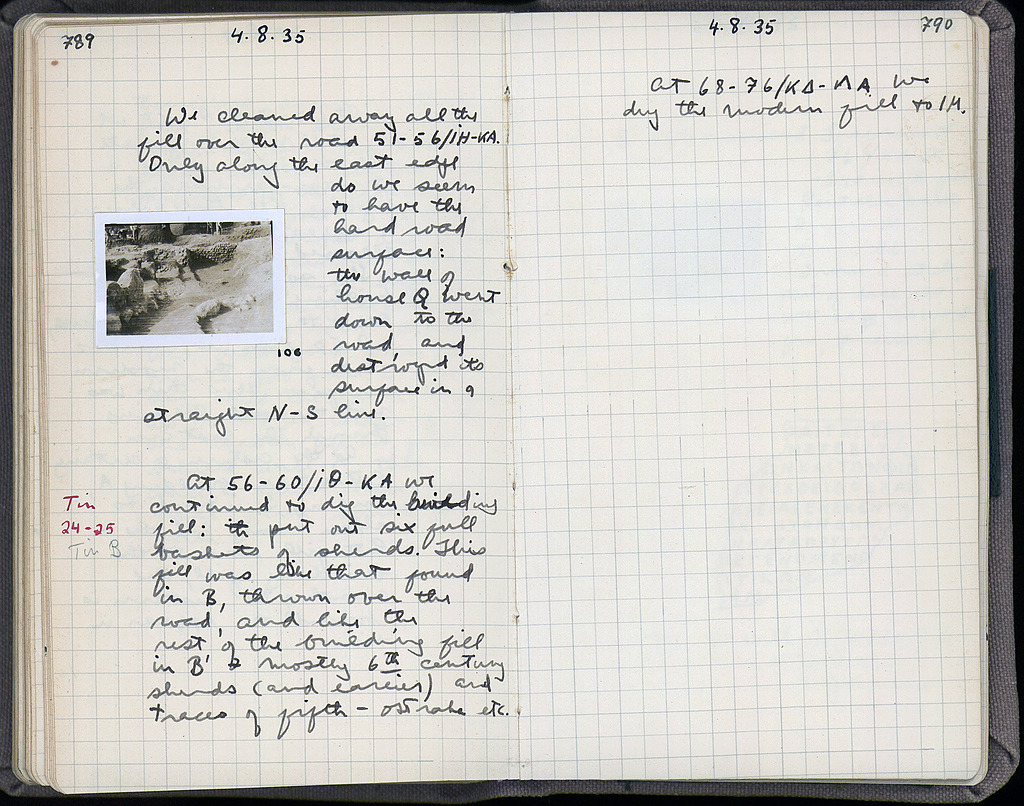 789
4.8.35
We cleaned away all the
fill over the road 51-56/ΙΗ-ΚΑ.
Only along the east edge
do we seem
to have the
hard road
surface:
the wall of
house Q went
down to the
road and
destroyed its
surface in a
straight N-S line.
106
At 56-60/ΙΘ-ΚΑ we
continued to dig the building
fill: put out six full
baskets of sherds. This
fill was like that found
in B, thrown over the
road, and like the
rest of the building fill
in B' mostly 6th century
sherds (and earlier) and
traces of fifth - ostraka etc.
Tin
24-25
Tin B
790
4.8.35
At 68-76/ΚΔ-ΛΑ we
dig the modern fill to